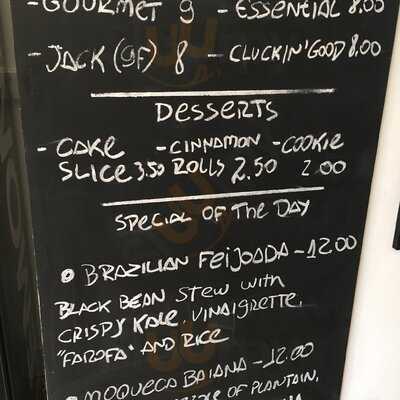 -GOURMET 9 - ESSENTIAL 8.00
- JACK (GF) 8 - CLUCKIN' GOOD 8.00
DESSERTS
- CAKE - CINNAMON - COOKIE
SLICE 3.50 ROLLS 2.50 2.00
SPECIAL OF THE DAY
• BRAZILIAN FEIJOADA - 12.00
BLACK BEAN STEW WITH
CRISPY KALE, VINAIGRETTE,
"FAROFA" AND RICE
• MOQUECA BAIANA - 12.00
OF PLANTAIN,